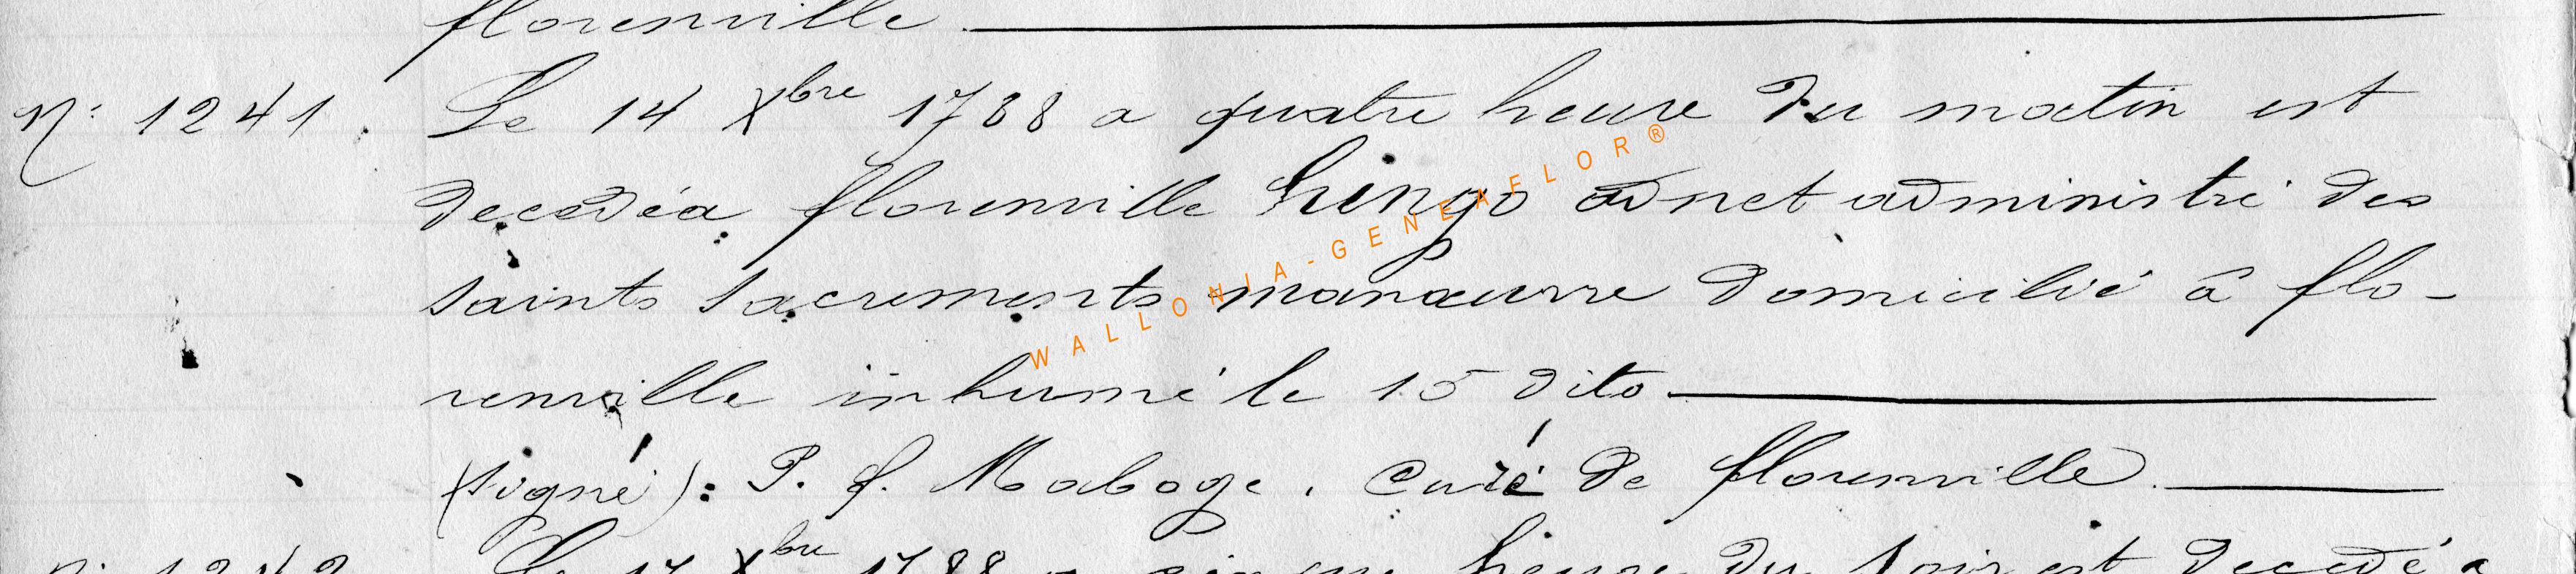 florenville.
N: 1241. Le 14 Xbre 1788 a quatre heure du matin est
decedéa florenville hingo adnet administré des
saints sacrements manœuvre domicilié à flo-
renville inhumé le 15 dito
(signé): P. f. Maboge, Curé de florenville.
N: 1242 Le 17 Xbre 1788 a cinque heure du soir est decedé a
WALLONIA-GENEAFLOR®